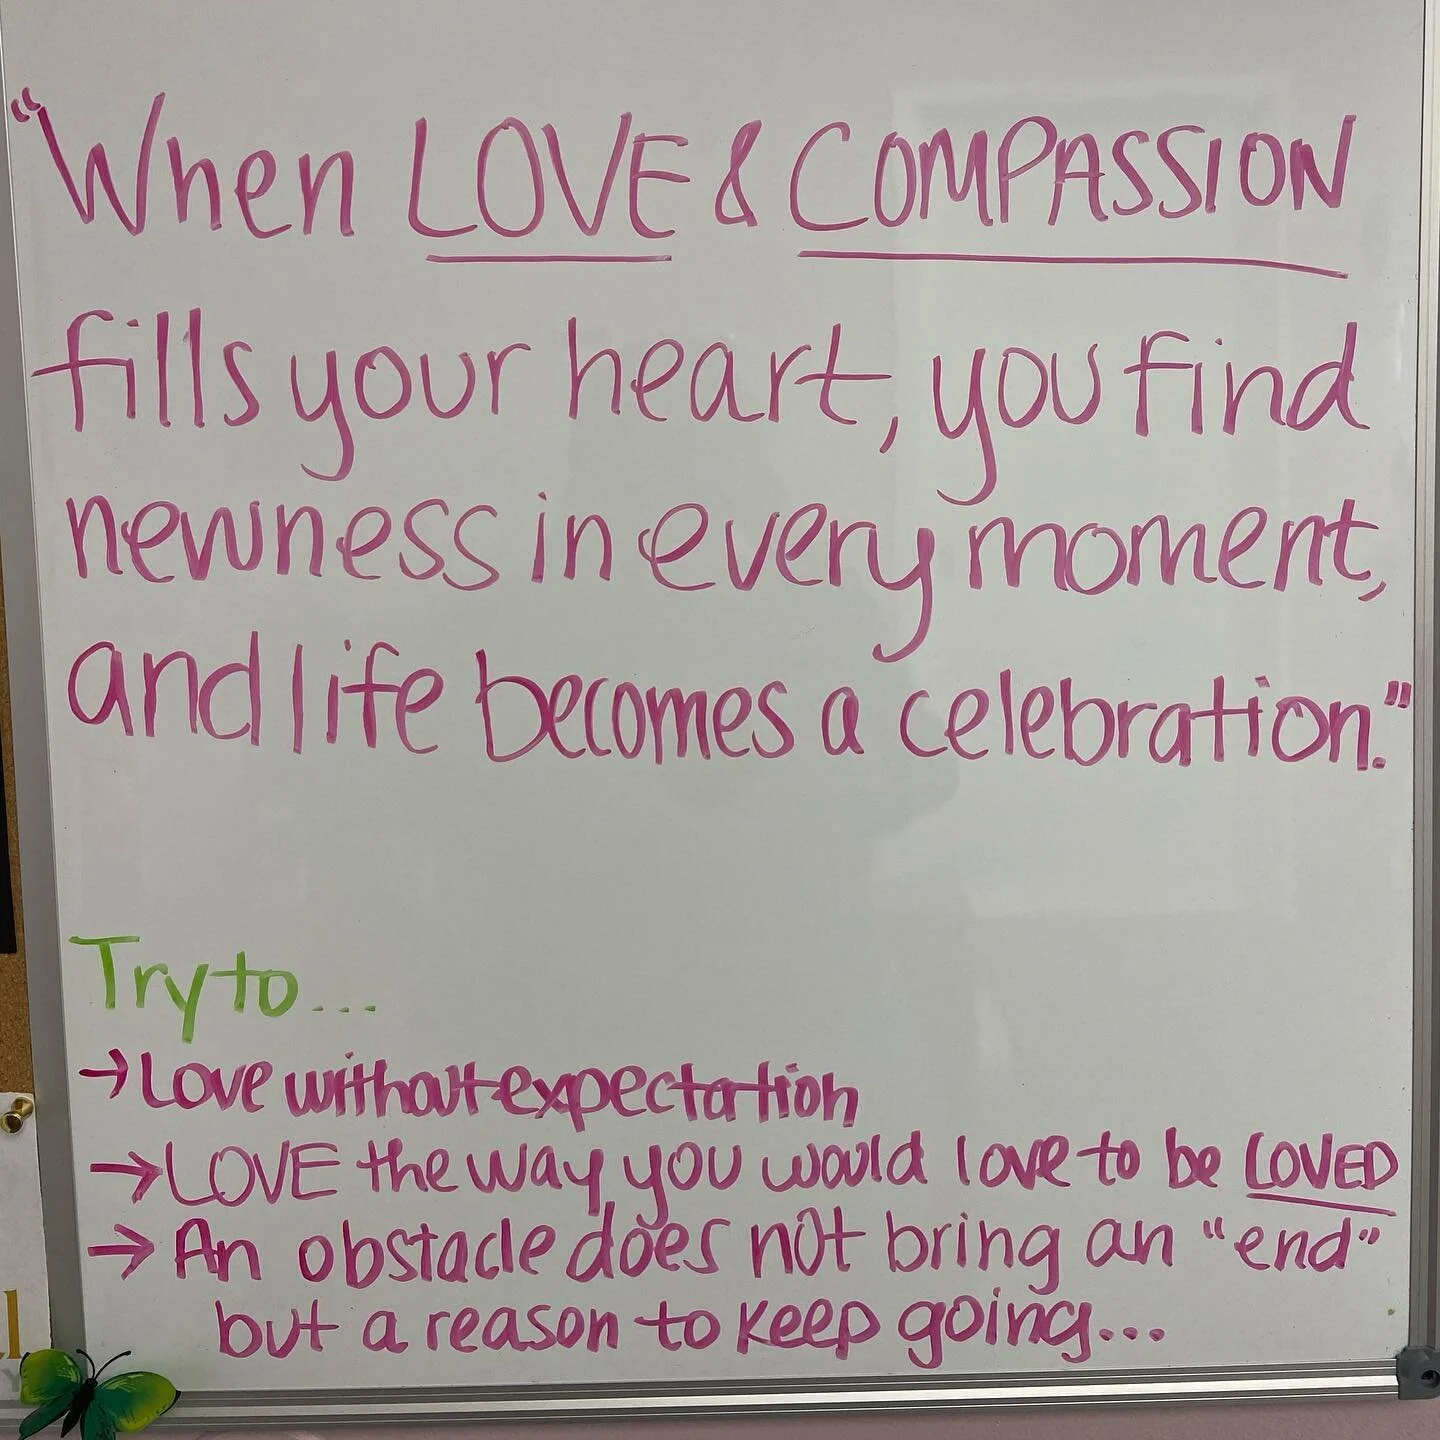 "When LOVE & COMPASSION
fills your heart, you find
newness in every moment,
and life becomes a celebration."
Try to...
→ Love without expectation
→ LOVE the way you would love to be LOVED
→ An obstacle does not bring an "end"
but a reason to keep going...